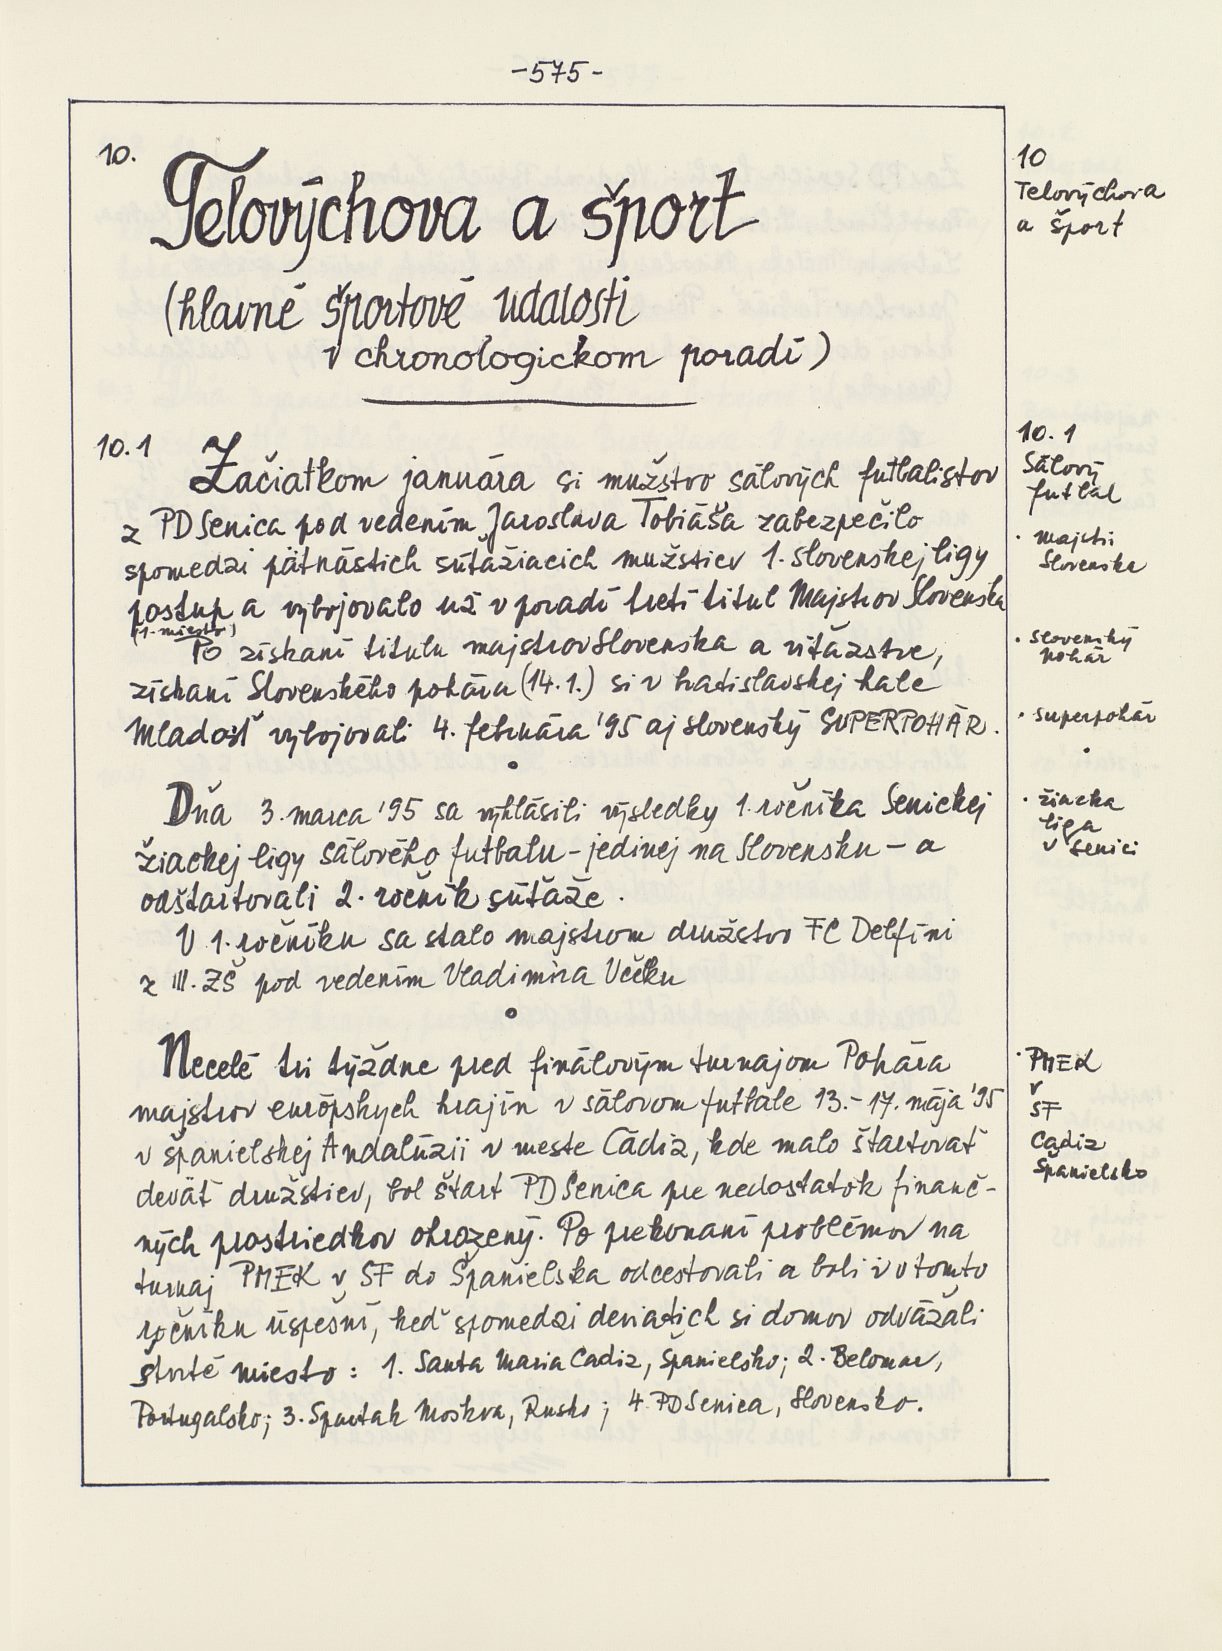 -575-
10.
Telovýchova a šport
(hlavné športové udalosti
v chronologickom poradí)
10.1 Začiatkom januára si mužstvo sálových futbalistov
z PD Senica pod vedením Jaroslava Tobiáša zabezpečilo
spomedzi pätnástich súťažiacich mužstiev 1. slovenskej ligy
postup a vybojovalo už v poradí tretí titul Majstrov Slovenska
(1. miesto)
Po získaní titulu majstrov Slovenska a víťazstve,
získaní Slovenského pohára (14.1.) si v bratislavskej hale
Mladosť vybojovali 4. februára '95 aj slovenský SUPERPOHÁR.
Dňa 3. marca '95 sa vyhlásili výsledky 1. ročníka Senickej
žiackej ligy sálového futbalu - jedinej na Slovensku - a
odštartovali 2. ročník súťaže.
V 1. ročníku sa stalo majstrom družstvo FC Delfíni
z III. ZŠ pod vedením Vladimíra Včelku
Necelé tri týždne pred finálovým turnajom Pohára
majstrov európskych krajín v sálovom futbale 13.-17. mája '95
v španielskej Andalúzii v meste Cádiz, kde malo štartovať
deväť družstiev, bol štart PD Senica pre nedostatok finanč-
ných prostriedkov ohrozený. Po prekonaní problémov na
turnaj PMEK v SF do Španielska odcestovali a boli i v tomto
ročníku úspešní, keď spomedzi deviatich si domov odvážali
štvrté miesto: 1. Santa Maria Cadiz, Španielsko; 2. Belomar,
Portugalsko; 3. Spartak Moskva, Rusko; 4. PD Senica, Slovensko.
10
Telovýchova
a šport
10.1
Sálový
futbal
· majstri
Slovenska
· slovenský
pohár
· superpohár
· žiacka
liga
v Senici
· PMEK
v
SF
Cadiz
Španielsko